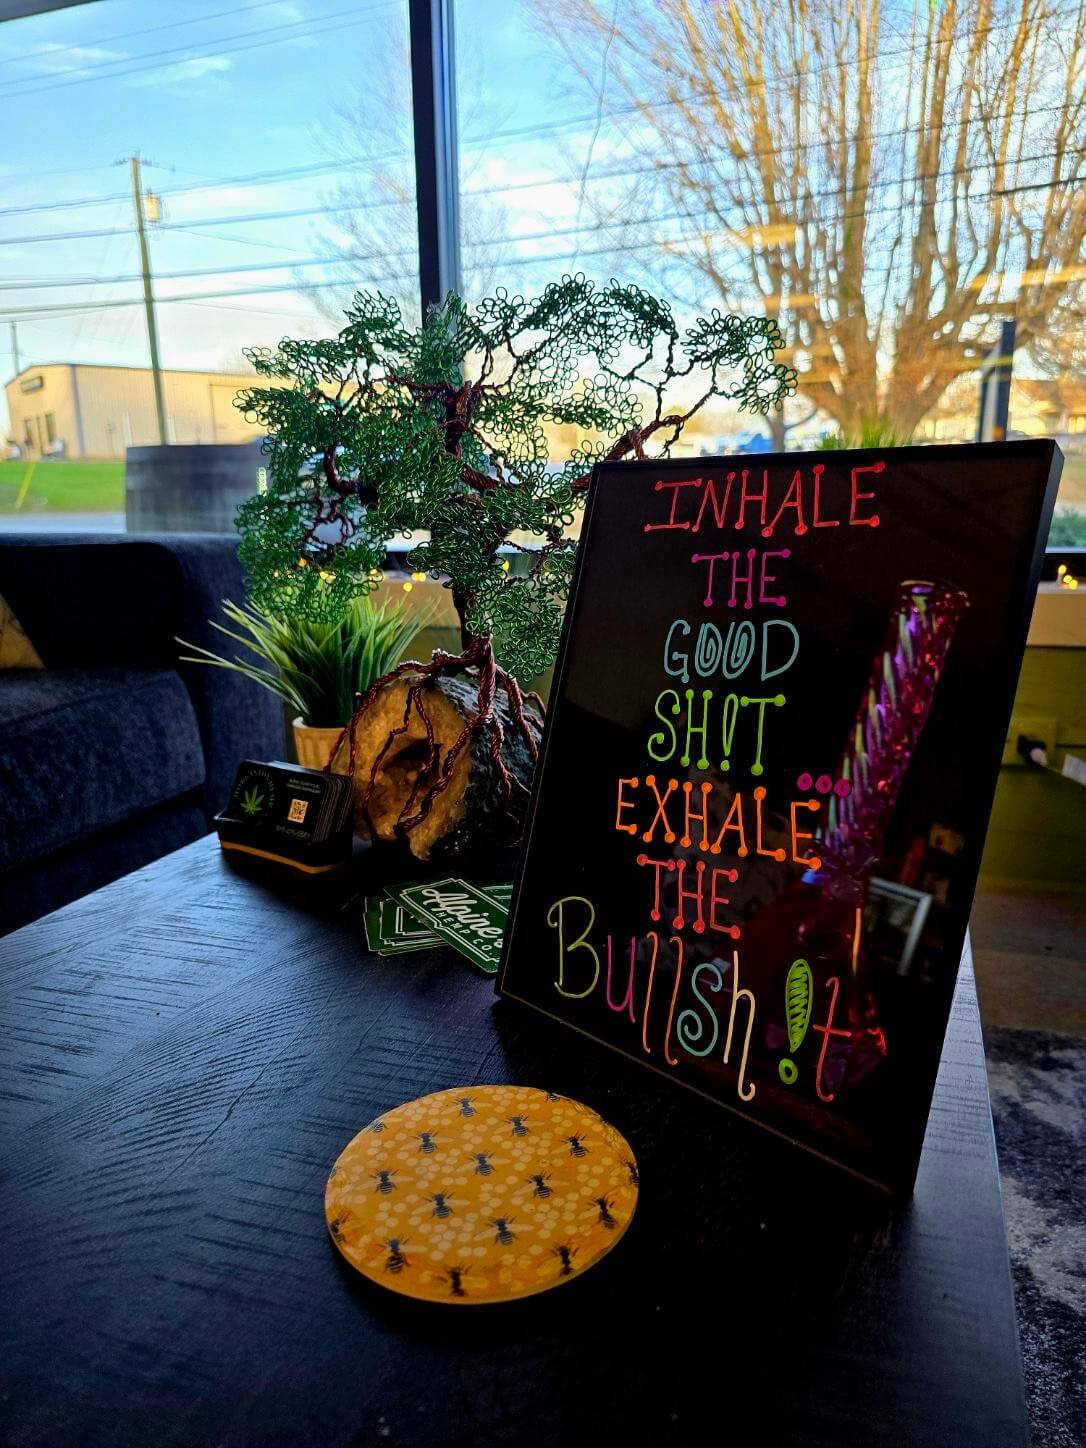 INHALE
THE
GOOD
SH!T
...
EXHALE
THE
Bullsh!t
HEMP CO